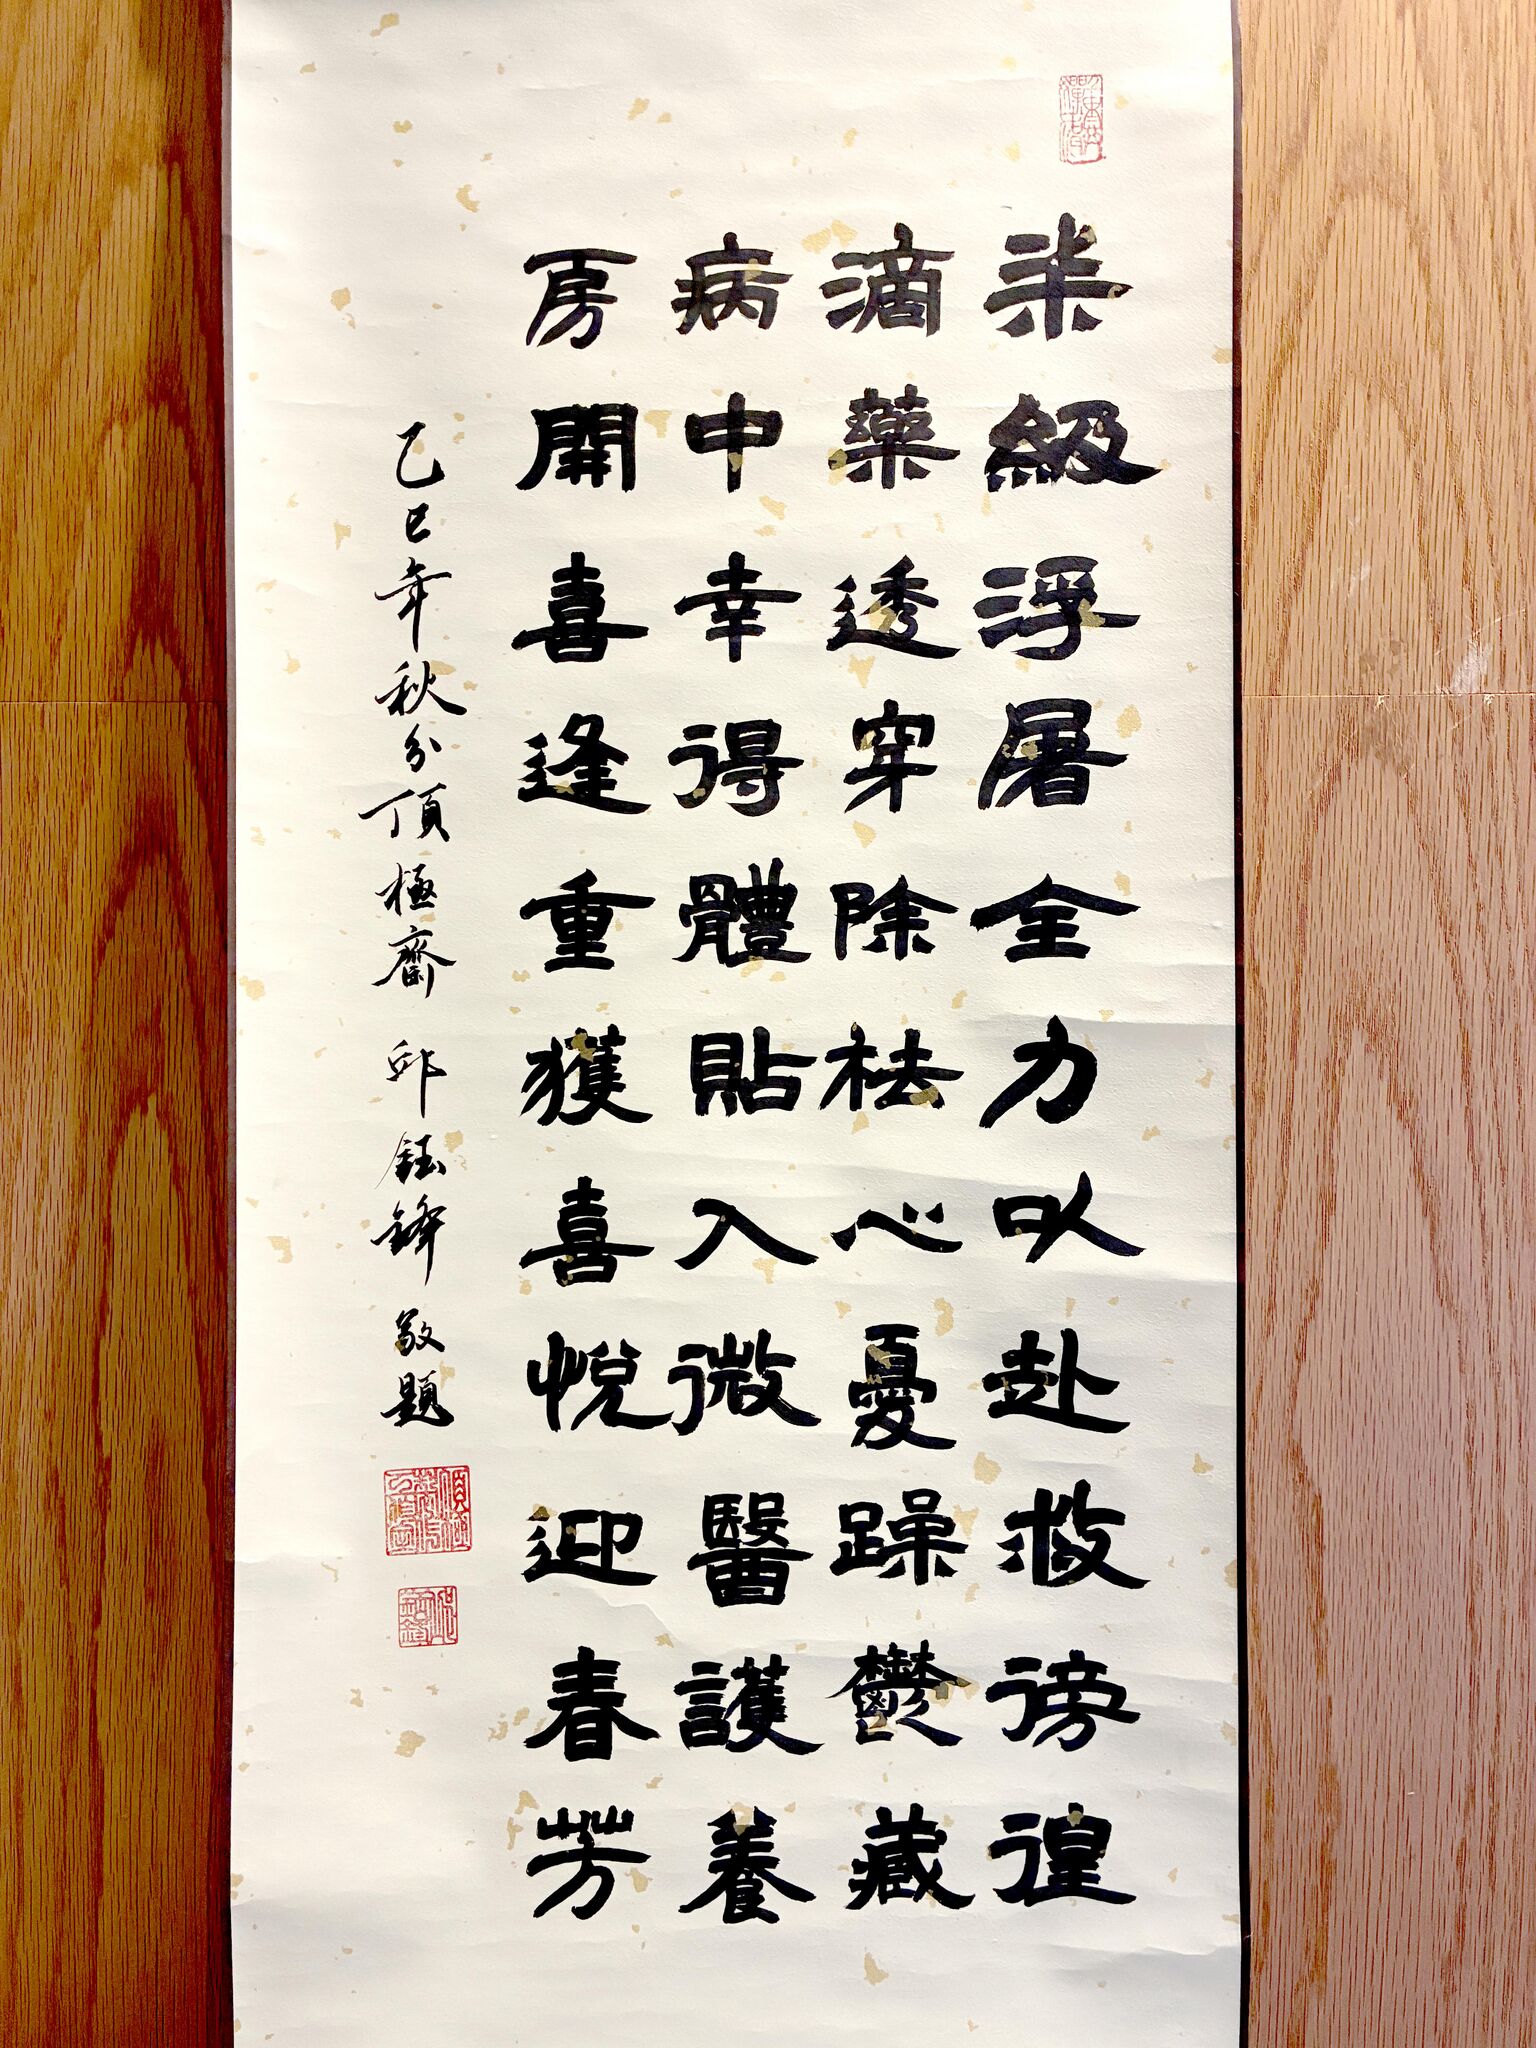 柒級浮屠全力以赴救徬徨
滴藥透穿除祛心憂躁鬱藏
病中幸得體貼入微醫護養
房開喜逢重獲喜悅迎春芳
乙巳年秋分頂極齋 邱鈺鋒 敬題